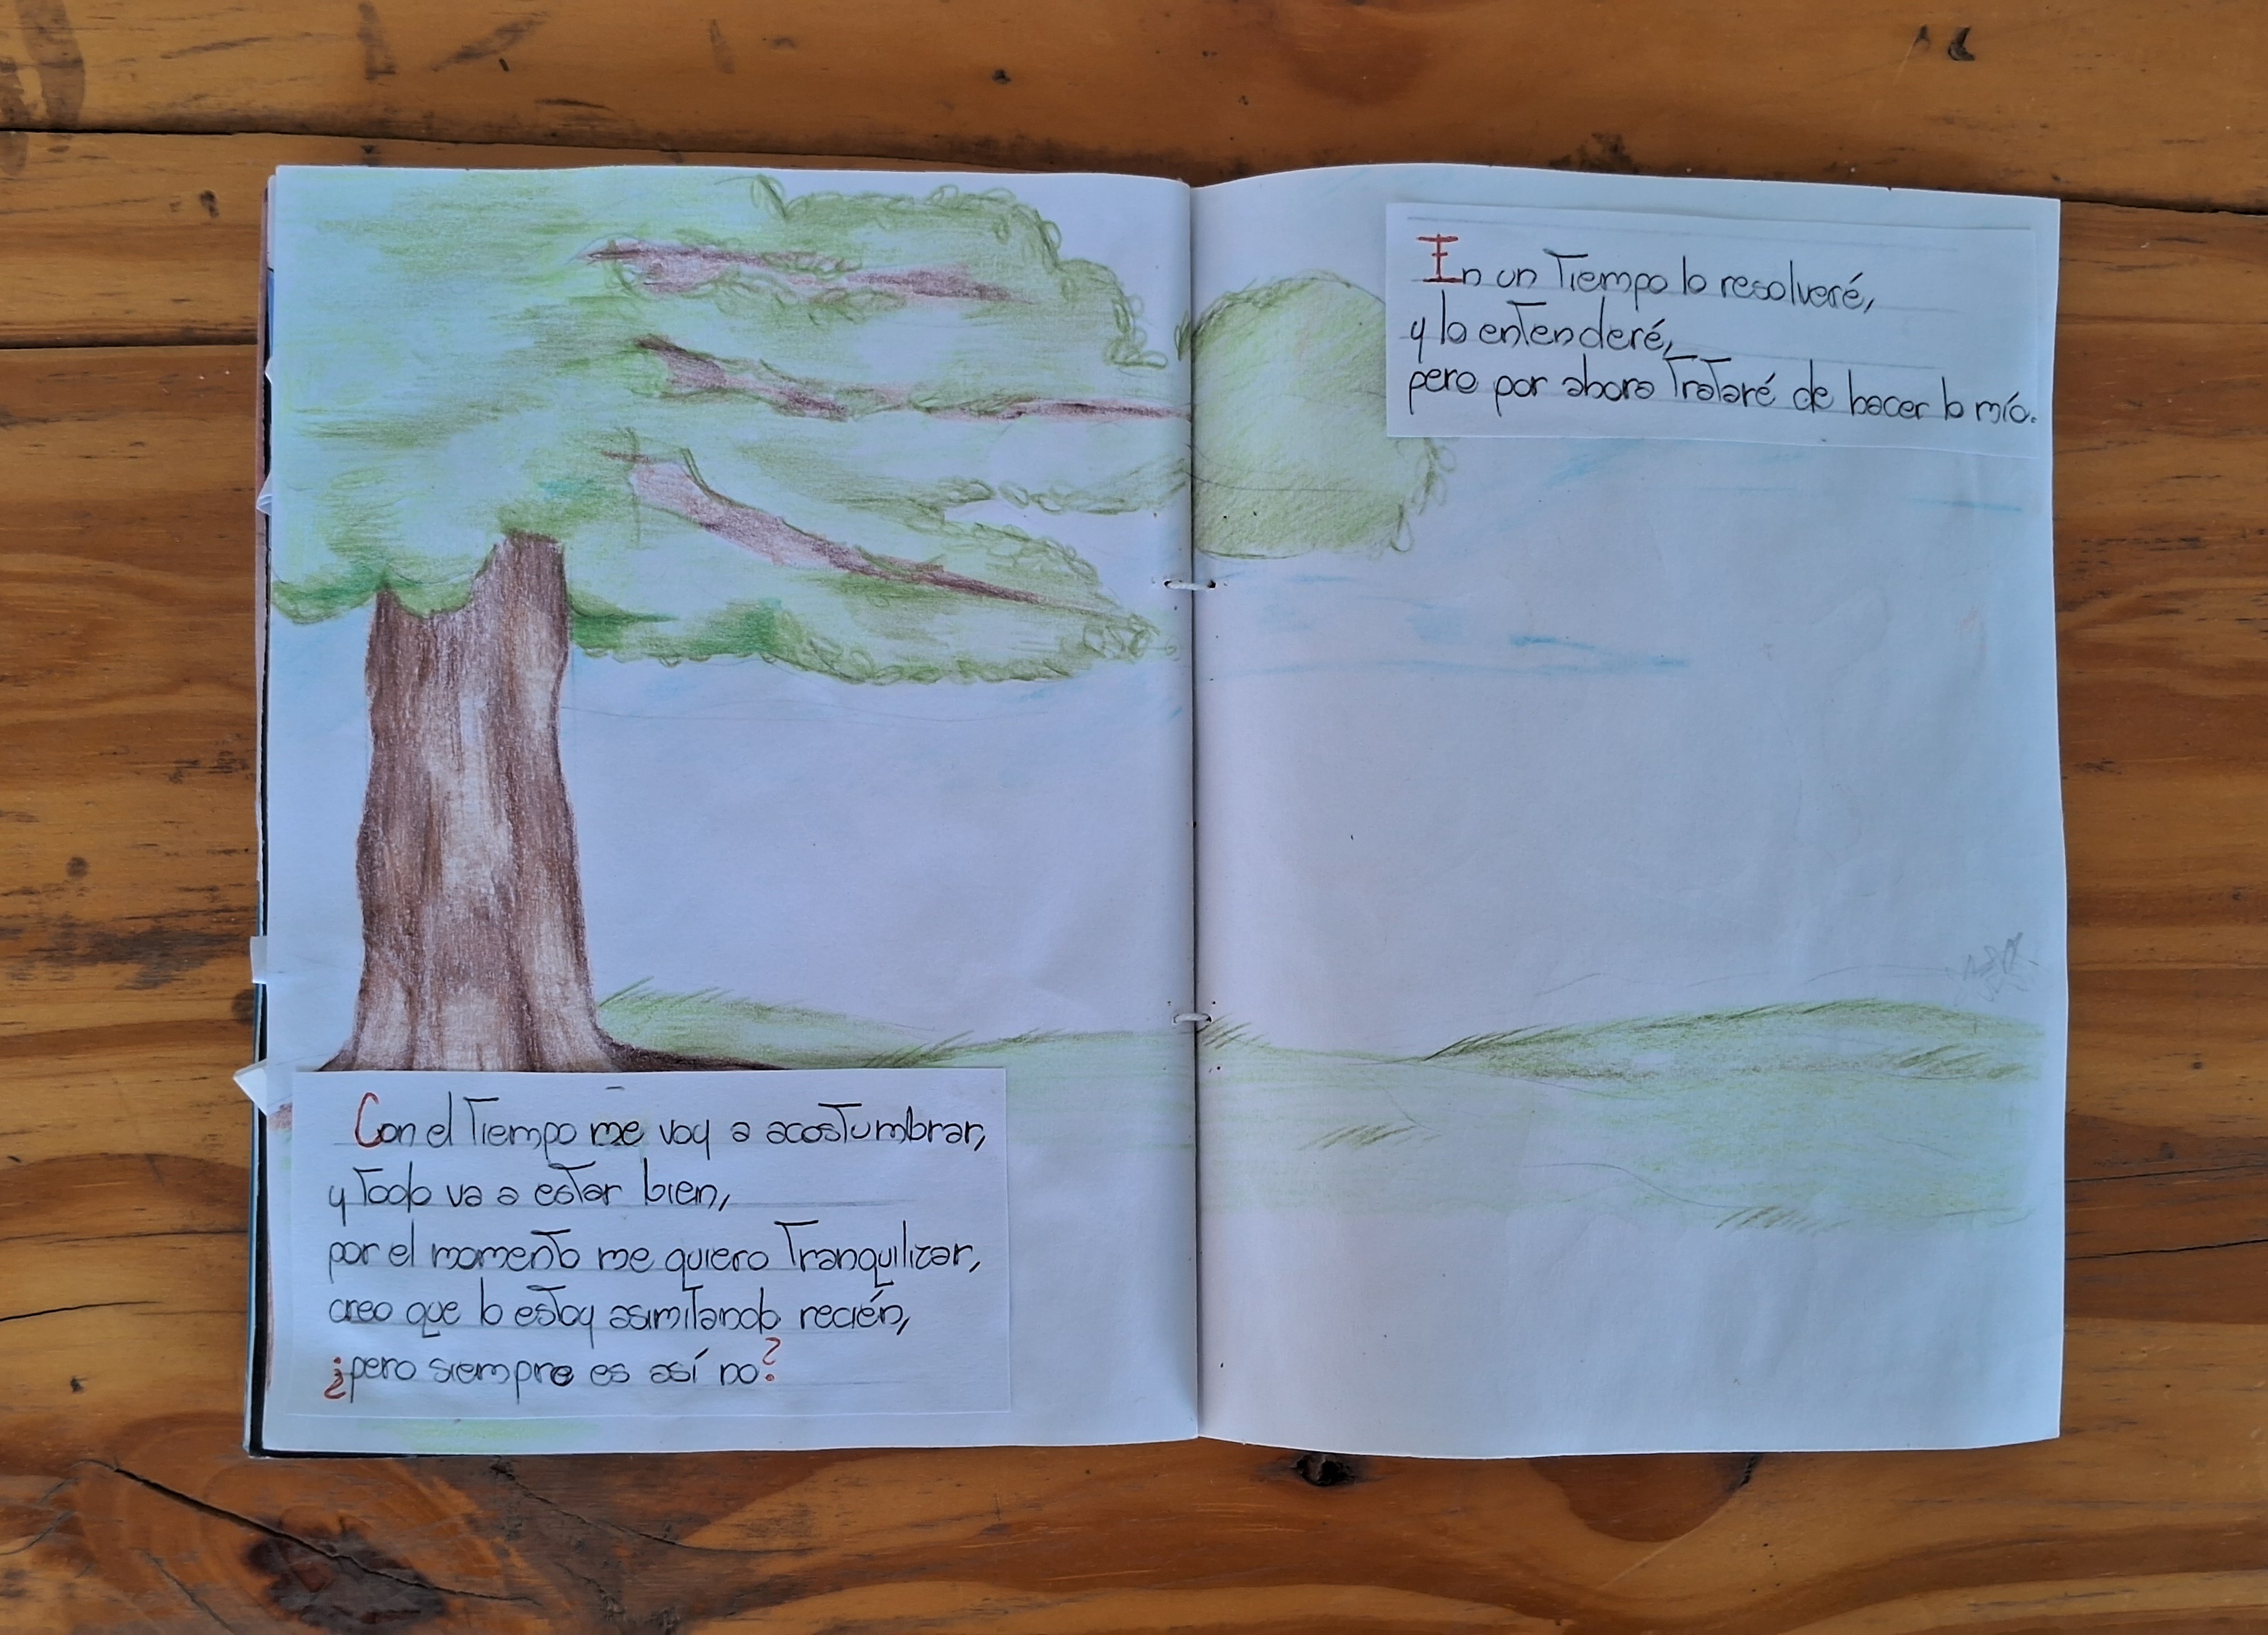 Con el tiempo me voy a acostumbrar,
y todo va a estar bien,
por el momento me quiero tranquilizar,
creo que lo estoy asimilando recién,
¿pero siempre es así no?
En un tiempo lo resolveré,
y lo entenderé,
pero por ahora trataré de hacer lo mío.